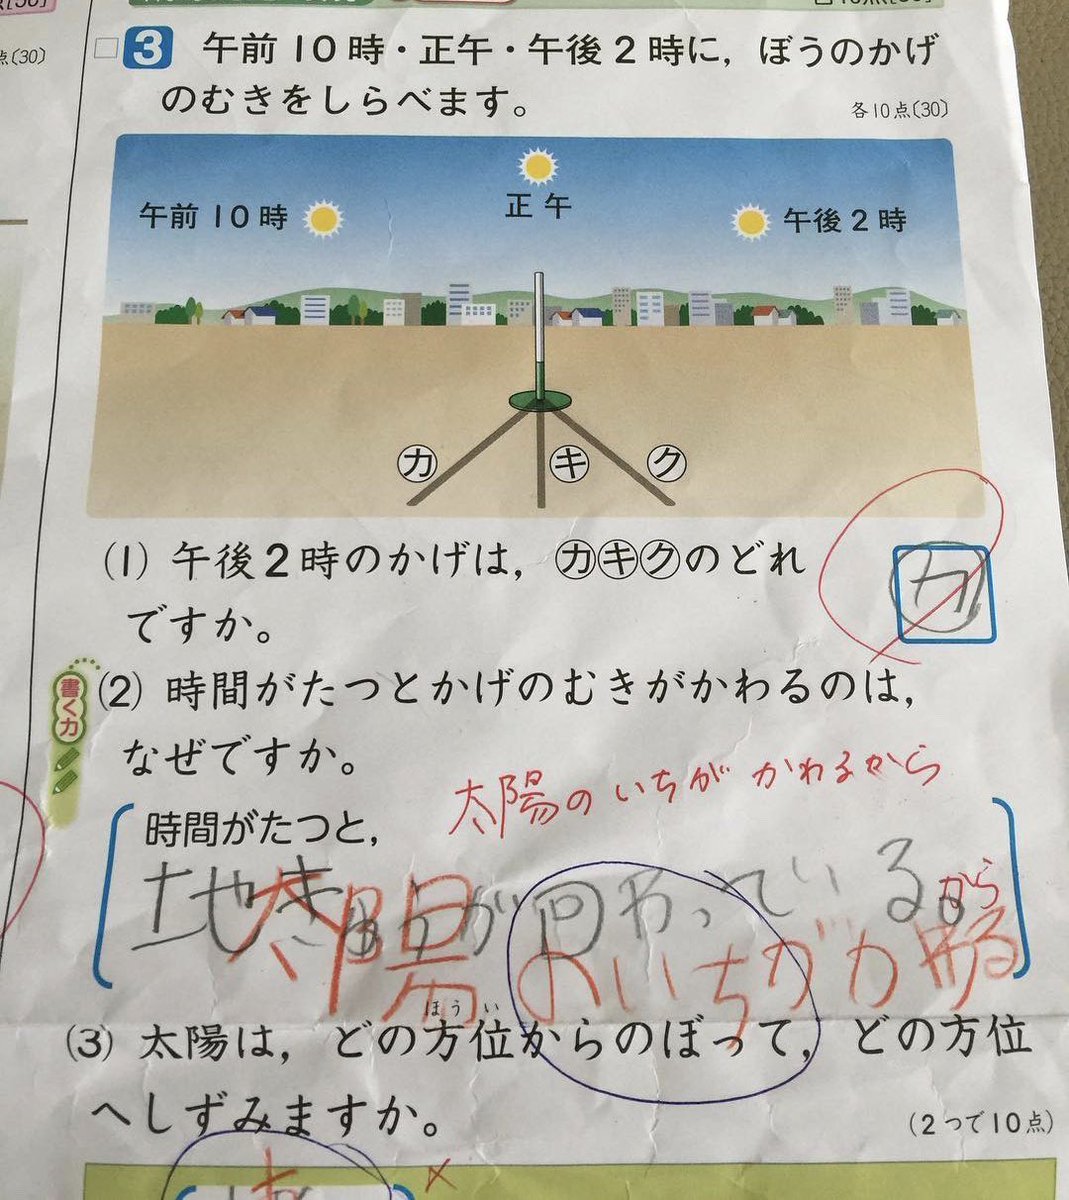 点〔30〕
3 午前10時・正午・午後2時に，ぼうのかげ
のむきをしらべます。
各10点〔30〕
午前10時
正午
午後2時
カ
キ
ク
(1) 午後2時のかげは，㋕㋖㋗のどれ
ですか。
㋕
書く力
(2) 時間がたつとかげのむきがかわるのは，
なぜですか。
太陽のいちがかわるから
時間がたつと，
地きゅうが回わっているから
太陽のいちがかわる
ほうい
(3) 太陽は，どの方位からのぼって，どの方位
へしずみますか。
(2つで10点)